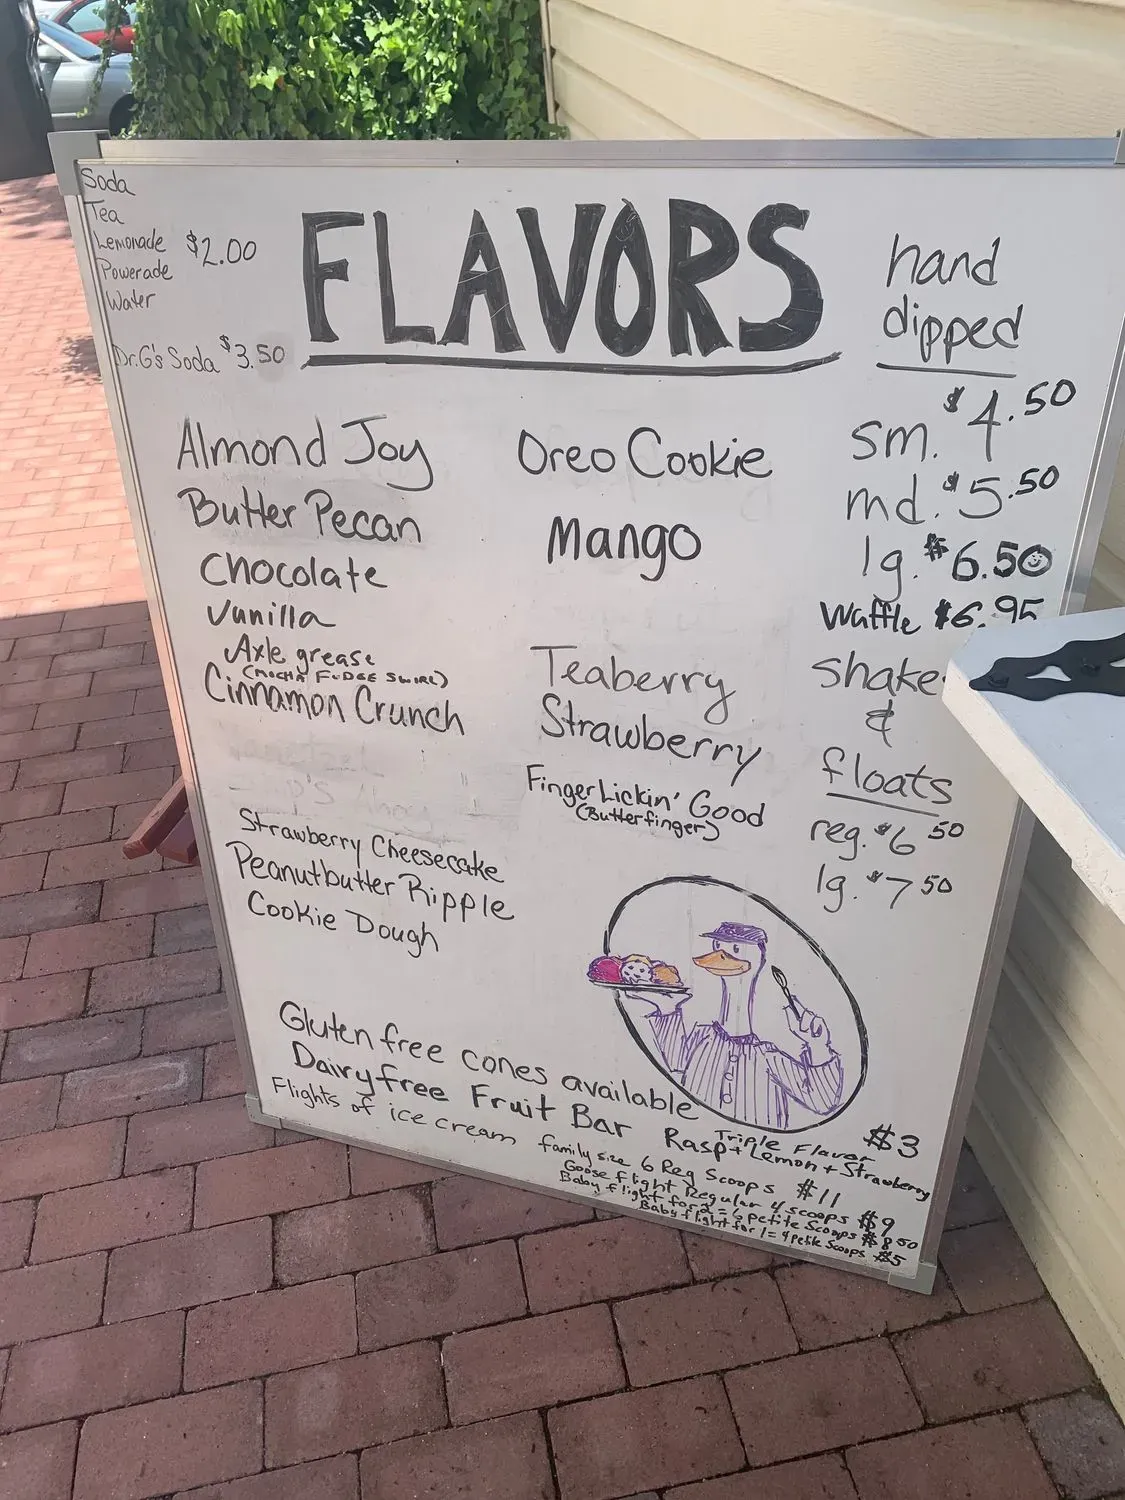 Soda
Tea
Lemonade
Powerade
Water
$2.00
Dr.G's Soda $3.50
FLAVORS
Almond Joy
Butter Pecan
Chocolate
Vanilla
Axle grease
(MOCHA FUDGE SWIRL)
Cinnamon Crunch
Strawberry Cheesecake
Peanutbutter Ripple
Cookie Dough
Oreo Cookie
Mango
Teaberry
Strawberry
Finger Lickin' Good
(Butterfinger)
hand
dipped
sm. $4.50
md. $5.50
lg. $6.50
Waffle $6.95
shake
&
floats
reg. $6 50
lg. $7 50
Gluten free cones available
Dairy free Fruit Bar Triple Flavor $3
Rasp + Lemon + Strawberry
Flights of ice cream family size 6 Reg Scoops $11
Goose flight Regular 4 scoops $9
Baby flight for 2 = 6 petite Scoops $8 50
Baby flight for 1 = 4 petite Scoops $5